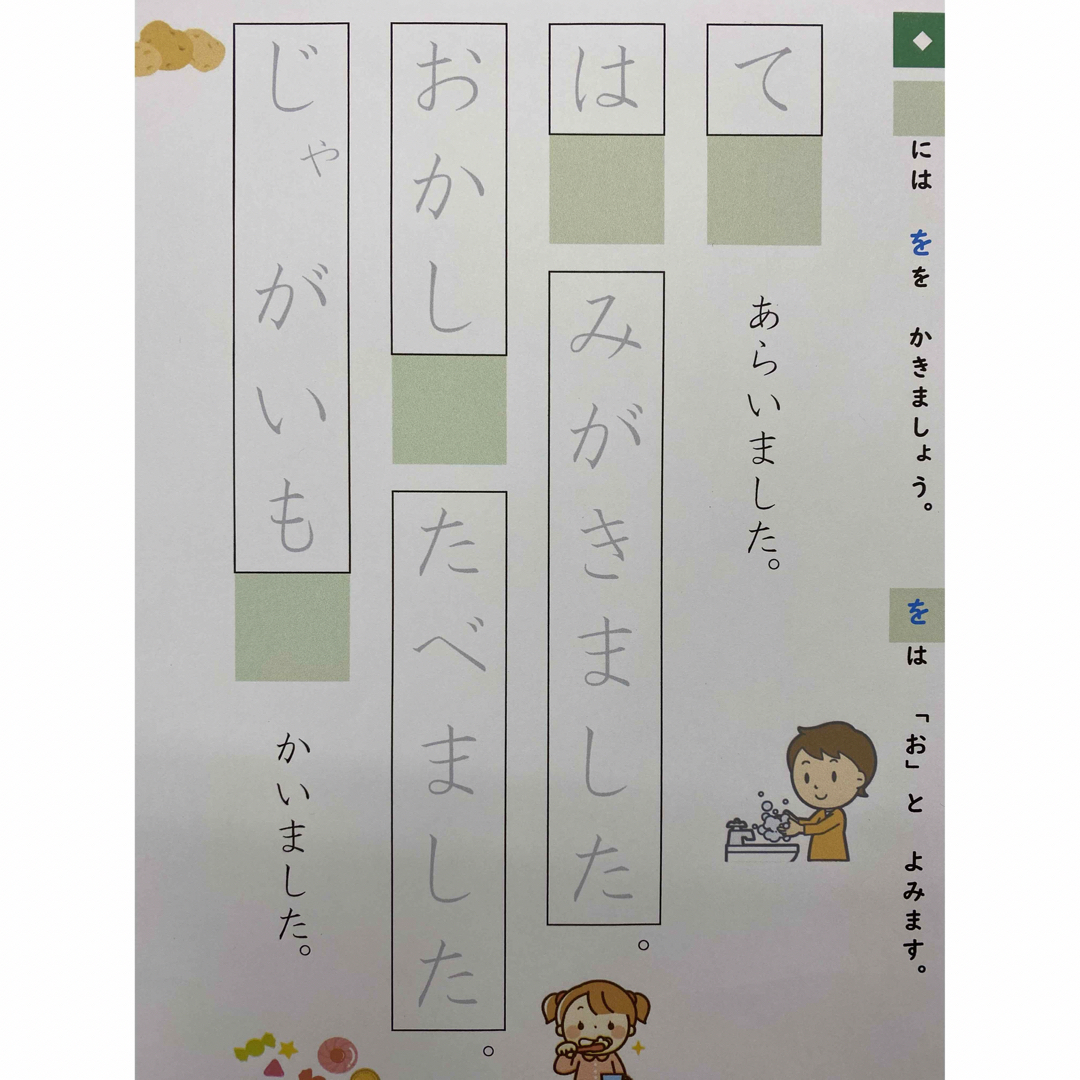 ◆ には をを かきましょう。 をは 「お」と よみます。
て あらいました。
は みがきました。
おかし たべました。
じゃがいも かいました。